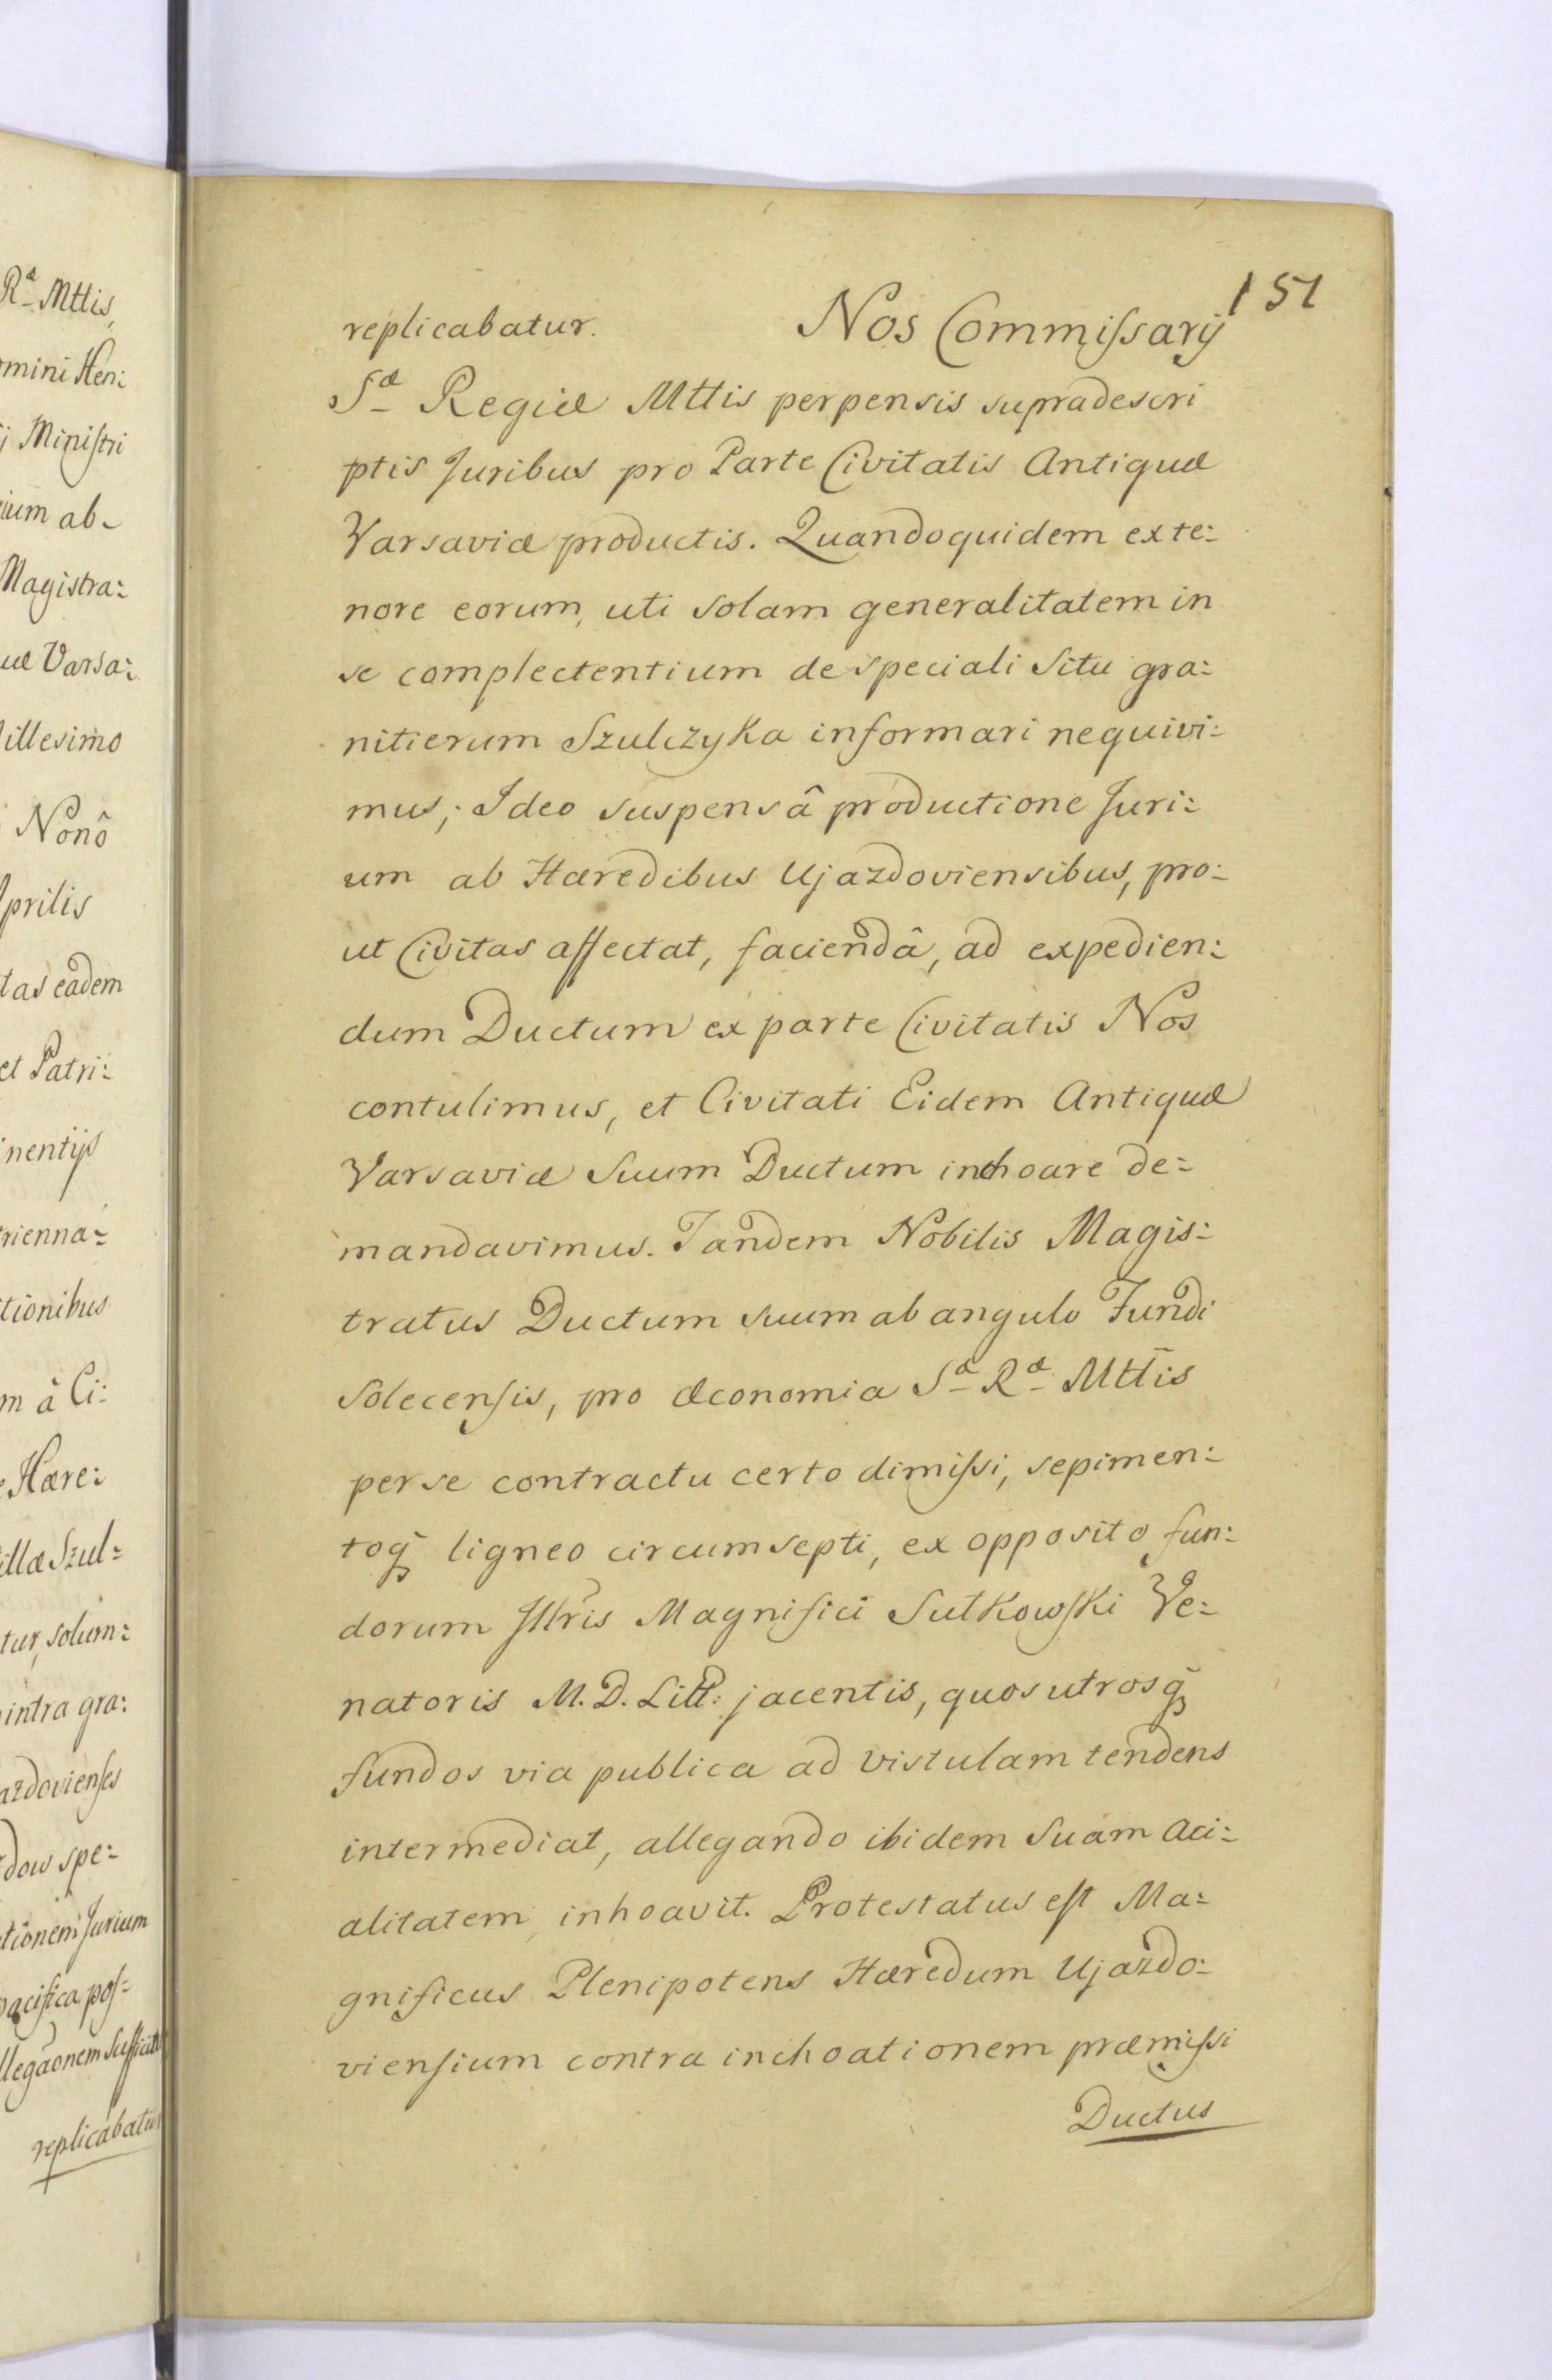 Ræ Mttis,
omini Hen:
j Ministri
ium ab-
Magistra:
uæ Varsa:
illesimo
Nonô
prilis
tas eadem
et Patri:
nentijs
rienna:
tionibus
m â Ci:
Hære:
illæ Szul:
tur, solum:
intra gra:
azdovienses
dow spe:
tionem Jurium
pacifica pos:
llegãonem
replicabatur
151
replicabatur. Nos Commissarÿ
Sæ Regiæ Mttis perpensis supradescri
ptis Juribus pro Parte Civitatis Antiquæ
Varsaviæ productis. Quandoquidem ex te:
nore eorum, uti solam generalitatem in
se complectentium de speciali Situ gra:
nitierum Szulczyka informari nequivi:
mus; Ideo suspensâ productione Juri:
um ab Hæredibus Ujazdoviensibus, pro:
ut Civitas affectat, faciendâ, ad expedien:
dum Ductum ex parte Civitatis Nos
contulimus, et Civitati Eidem Antiquæ
Varsaviæ Suum Ductum inchoare de:
mandavimus. Tandem Nobilis Magis:
tratus Ductum suum ab angulo Fundi
Solecensis, pro œconomia Sæ Ræ Mttis
per se contractu certo dimissi, sepimen:
toq̃ ligneo circumsepti, ex opposito fun:
dorum Jllris Magnifici Sułkowski Ve:
natoris M. D. Litt: jacentis, quos utrosq̃
fundos via publica ad Vistulam tendens
intermediat, allegando ibidem Suam aci:
alitatem, inhoavit. Protestatus est Ma:
gnificus Plenipotens Hæredum Ujazdo:
viensium contra inchoationem præmissi
Ductus